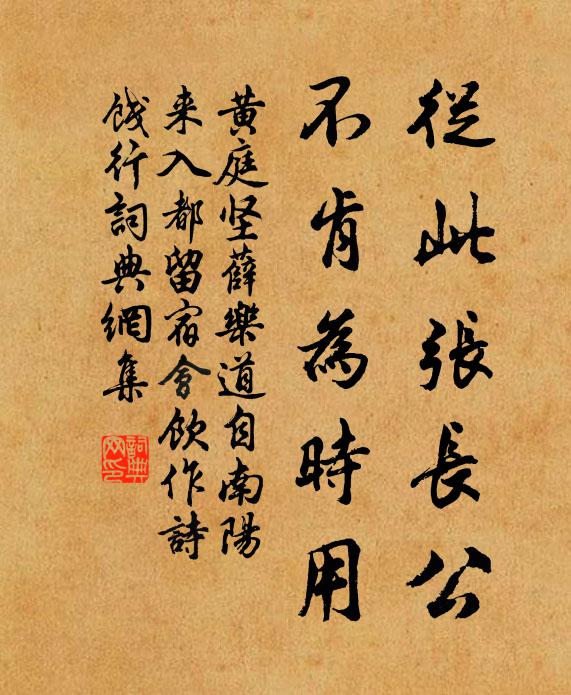 從此張長公
不肯為時用
黄庭坚薛樂道自南陽
来入都留宿會飲作詩
餞行詞典網集
詞典网印